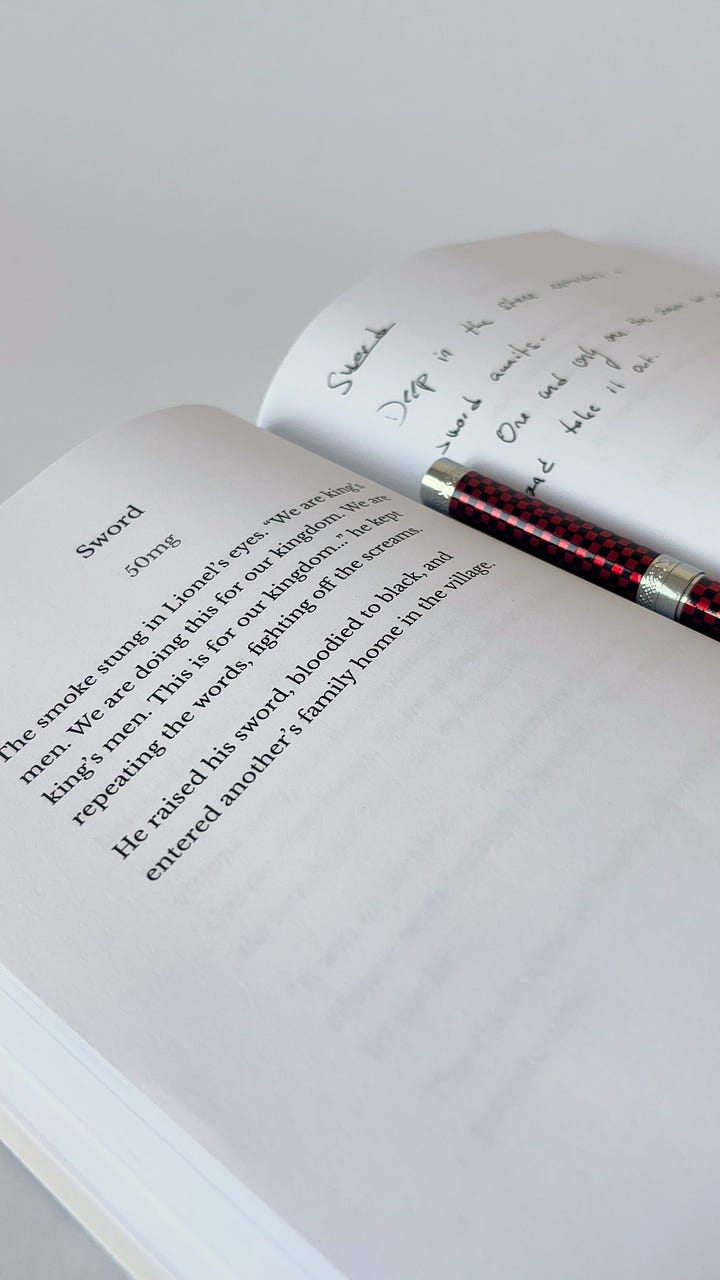 Sword
50mg
The smoke stung in Lionel's eyes. "We are king's
men. We are doing this for our kingdom. We are
king's men. This is for our kingdom..." he kept
repeating the words, fighting off the screams.
He raised his sword, bloodied to black, and
entered another's family home in the village.
Sword
Deep in the stone
sword awaits.
One and only one the
and take it out.